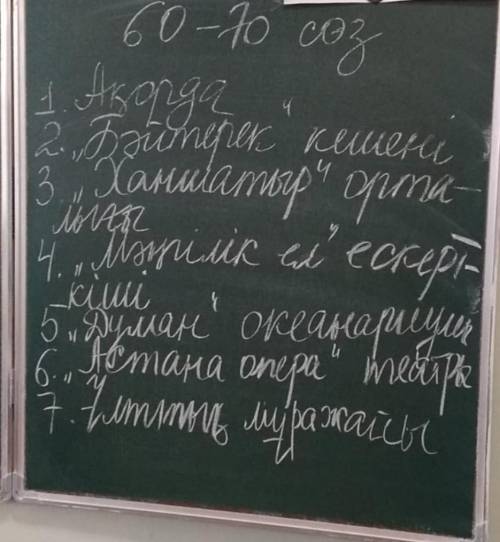 60-70 сөз
1. Ақорда
2. „Бәйтерек" кешені
3. „Ханшатыр" орта-
лығы
4. „Мәңгілік ел" ескерт-
кіші
5 „Думан" океанариумы
6. „Астана опера" театры
7. Ұлттық мұражайы